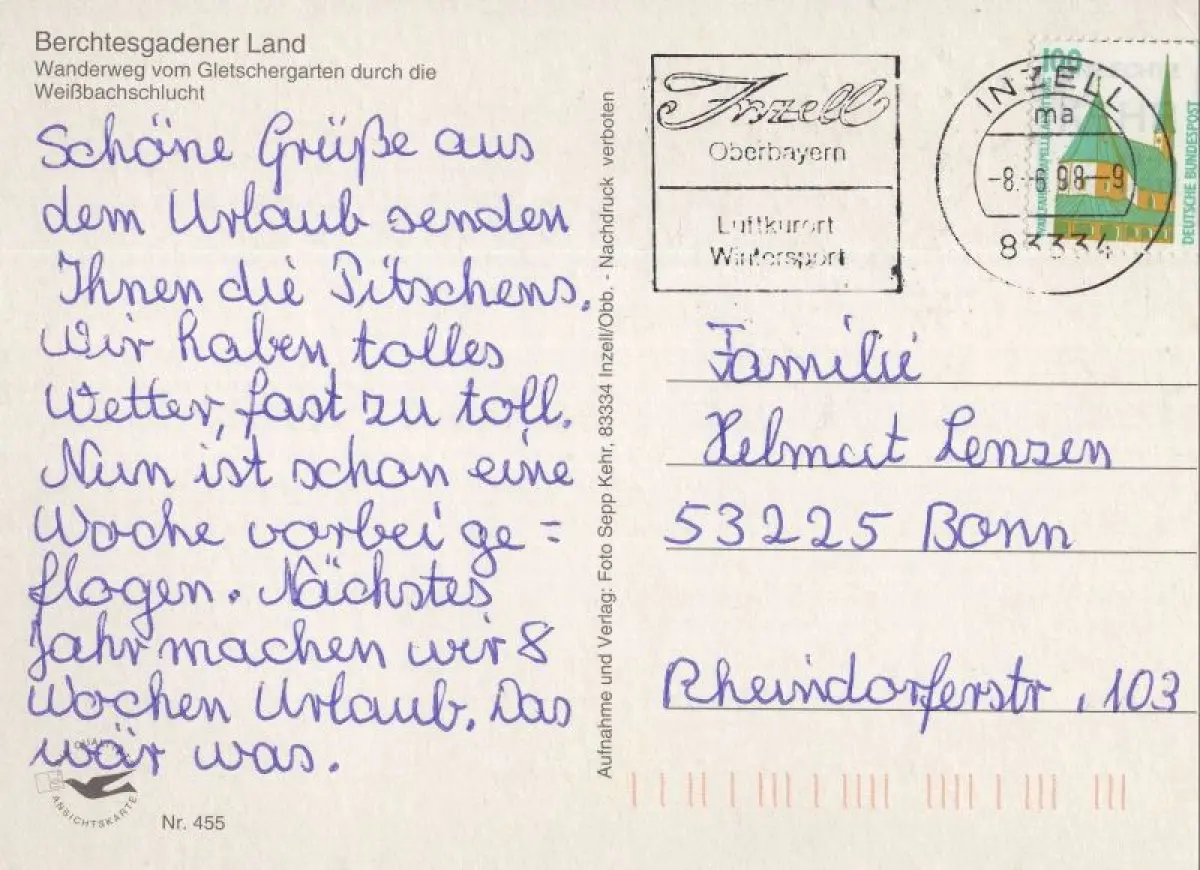 Berchtesgadener Land
Wanderweg vom Gletschergarten durch die
Weißbachschlucht
Schöne Grüße aus
dem Urlaub senden
Ihnen die Pitschens.
Wir haben tolles
Wetter, fast zu toll.
Nun ist schon eine
Woche vorbei ge=
flogen. Nächstes
Jahr machen wir 8
Wochen Urlaub. Das
wär was.
ANSICHTSKARTE
Nr. 455
Aufnahme und Verlag: Foto Sepp Kehr, 83334 Inzell/Obb. - Nachdruck verboten
Inzell
Oberbayern
Luftkurort
Wintersport
INZELL
ma
-8.-6.98-9
83334
100
DEUTSCHE BUNDESPOST
Familie
Helmut Lenzen
53225 Bonn
Rheindorferstr. 103